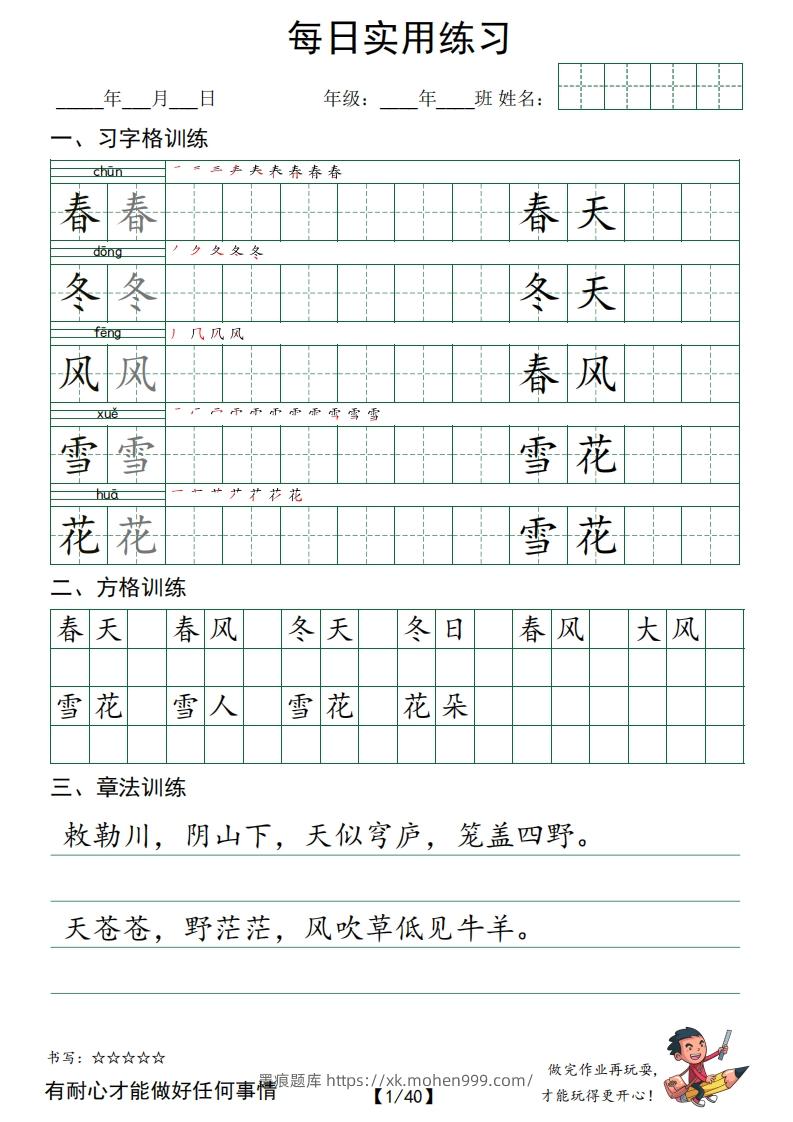 每日实用练习
_____年___月___日 年级：____年____班 姓名：
一、习字格训练
chūn 一 二 三 𡗗 夫 春 春 春
春 春 春 天
dōng 丿 ク 夂 冬 冬
冬 冬 冬 天
fēng 丿 几 凤 风
风 风 春 风
xuě
雪 雪 雪 花
huā
花 花 雪 花
二、方格训练
春天 春风 冬天 冬日 春风 大风
雪花 雪人 雪花 花朵
三、章法训练
敕勒川，阴山下，天似穹庐，笼盖四野。
天苍苍，野茫茫，风吹草低见牛羊。
书写：☆☆☆☆☆
有耐心才能做好任何事情
墨痕题库 https://xk.mohen999.com/
【1/40】
做完作业再玩耍，
才能玩得更开心！